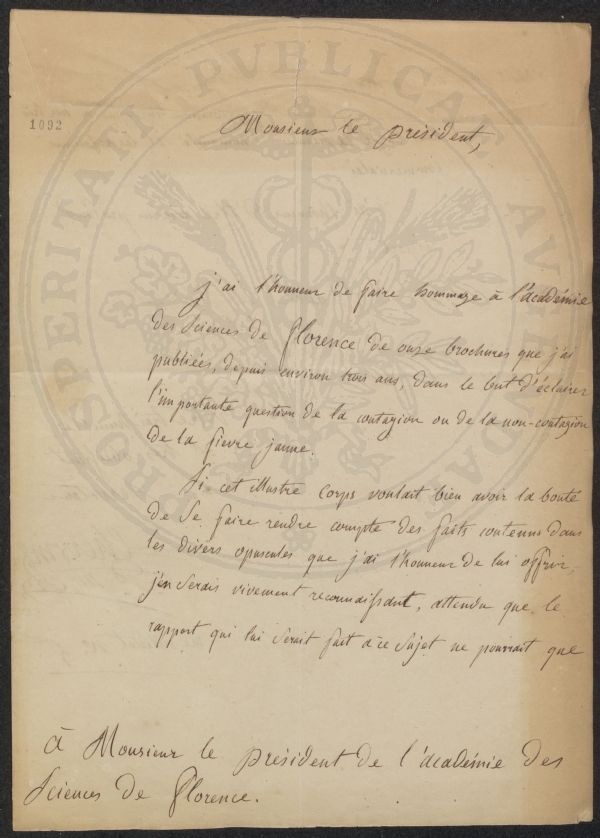 PROSPERITATI PUBLICAE AUGENDAE
1092
Monsieur le président,
j'ai l'honneur de faire hommage à l'académie
des Sciences de Florence de onze brochures que j'ai
publiées, depuis environ trois ans, dans le but d'éclairer
l'importante question de la contagion ou de la non-contagion
de la fievre jaune.
Si cet illustre corps voulait bien avoir la bonté
de se faire rendre compte des faits contenus dans
les divers opuscules que j'ai l'honneur de lui offrir,
j'en serais vivement reconnaissant, attendu que le
rapport qui lui serait fait à ce sujet ne pourrait que
à Monsieur le président de l'académie des
Sciences de Florence.